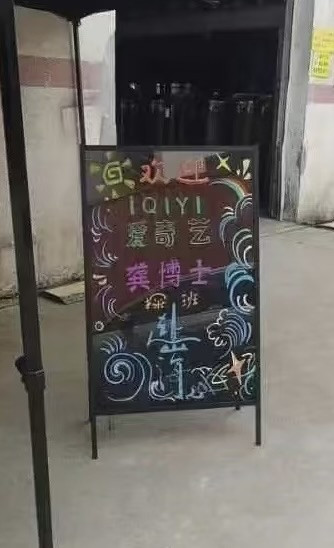 欢迎
IQIYI
爱奇艺
龚博士
探班